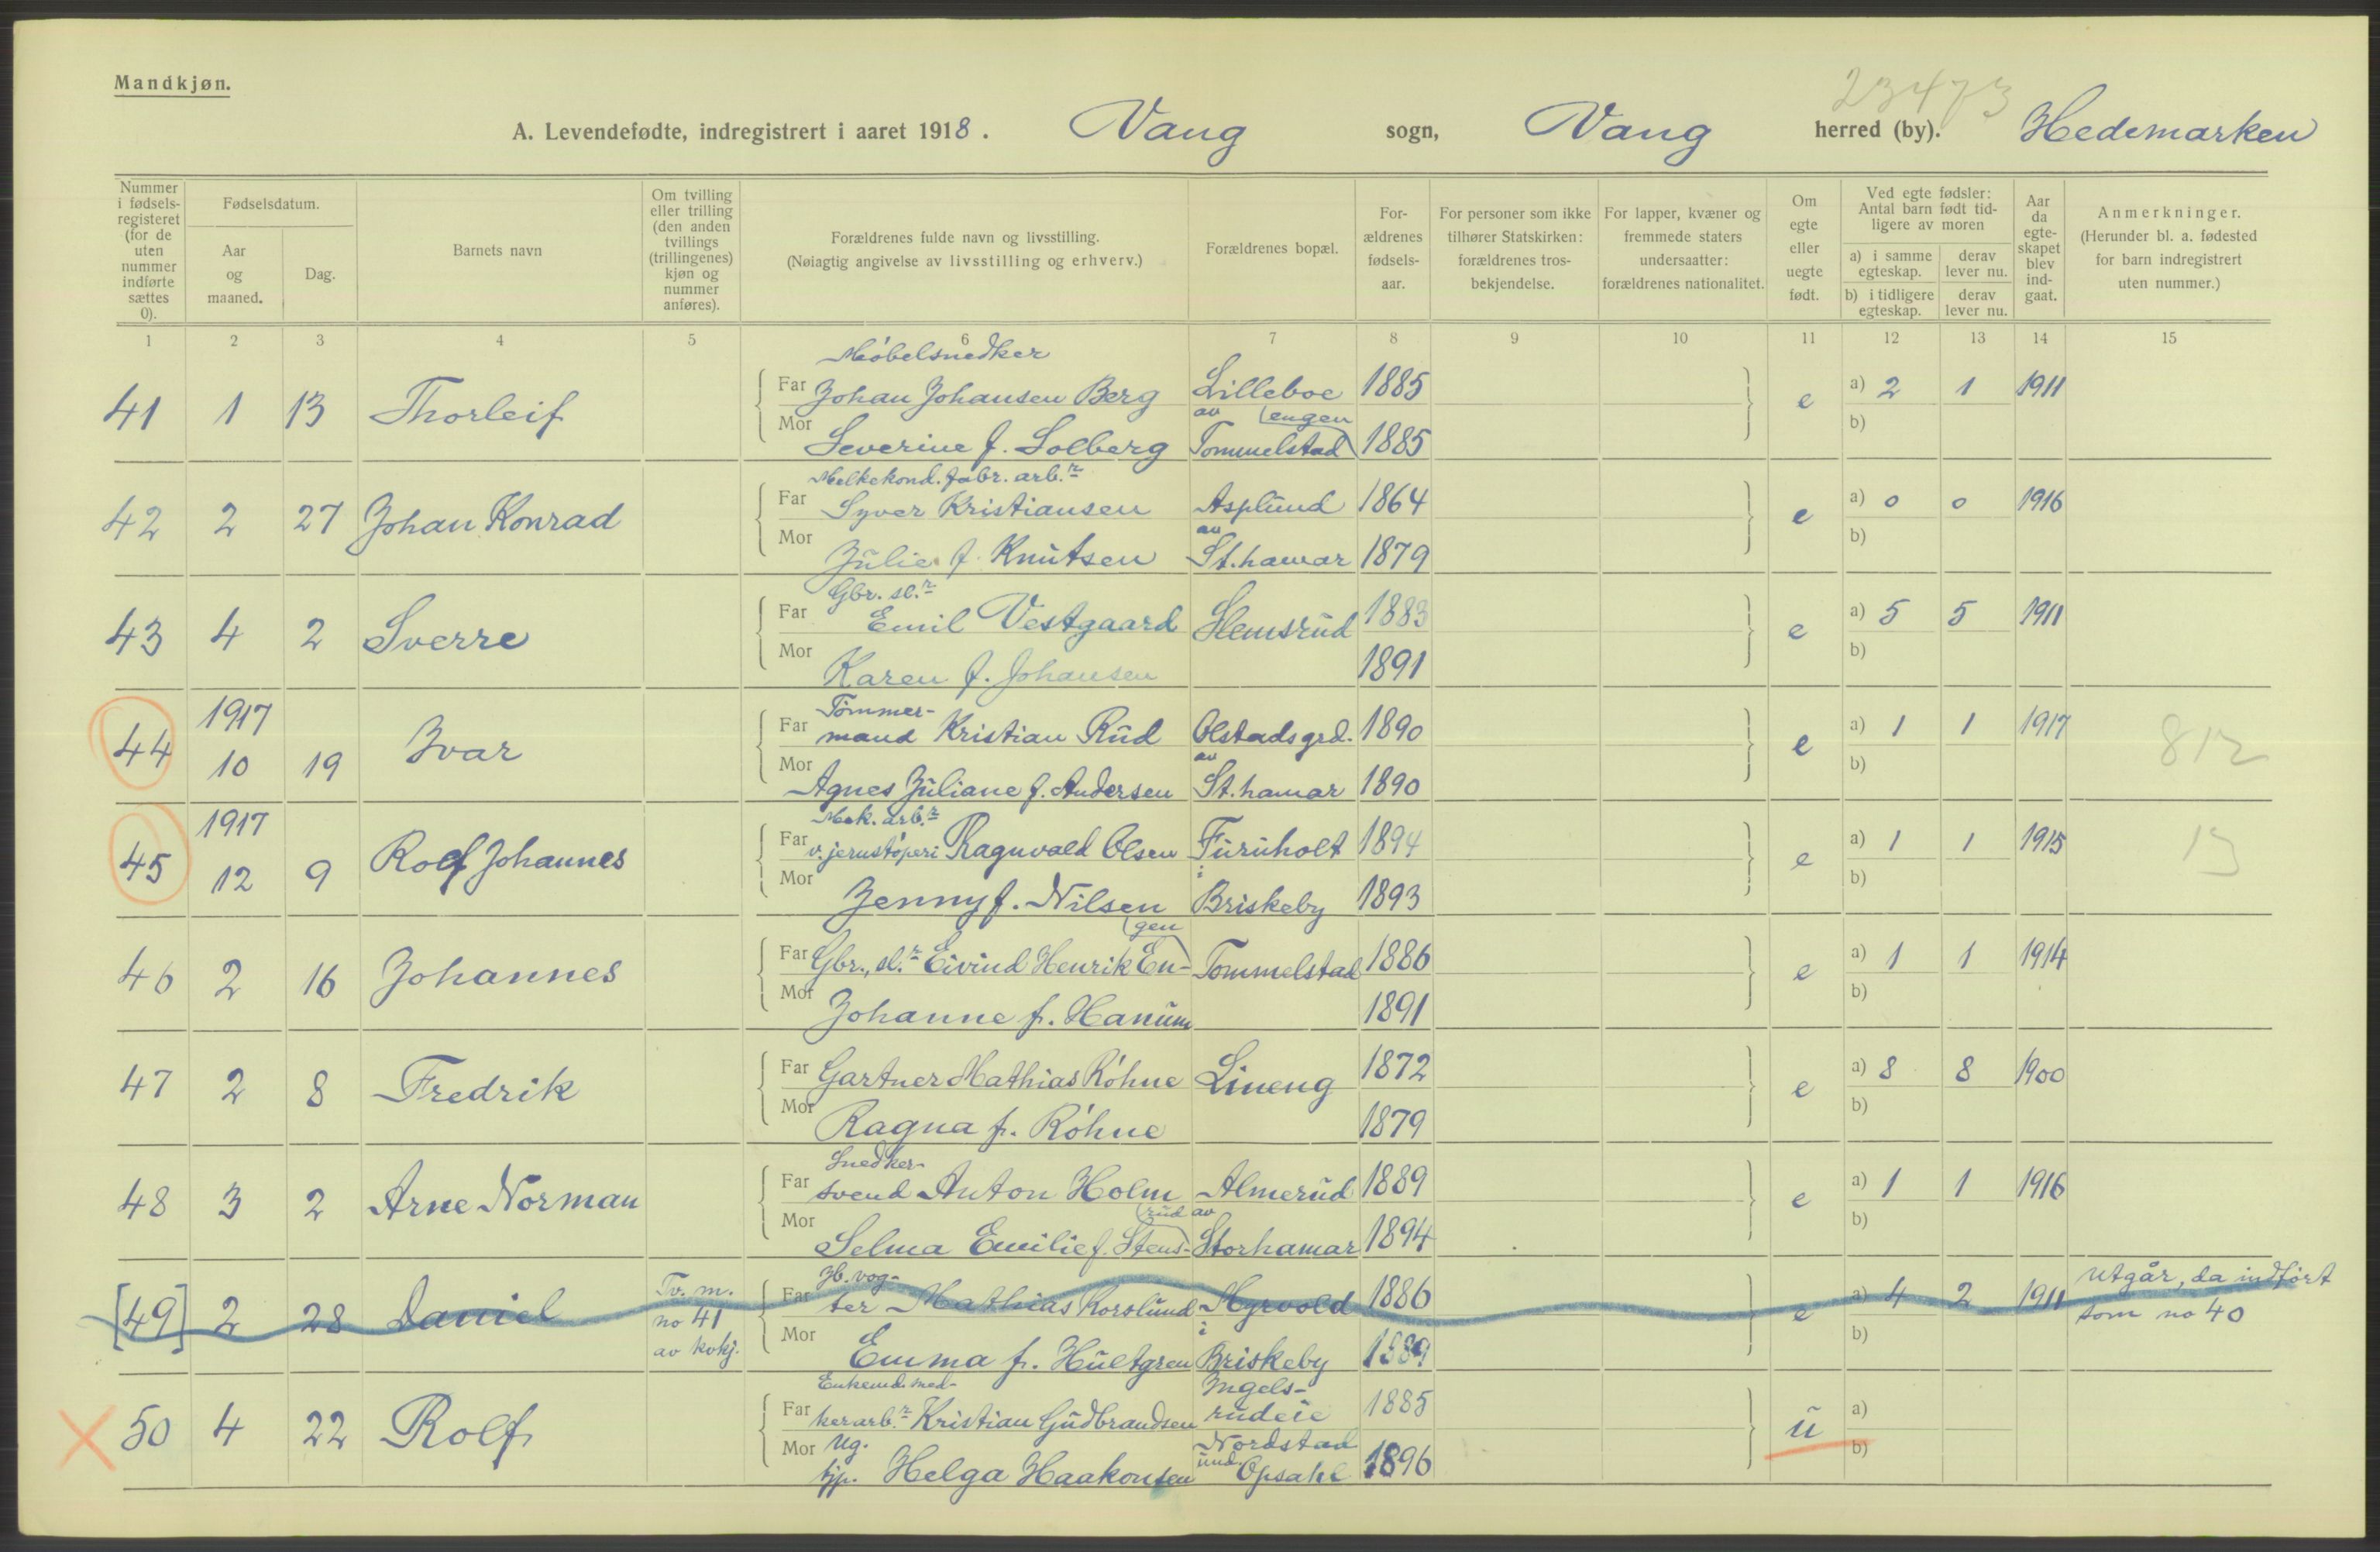 Mandkjøn.
23473
A. Levendefødte, indregistrert i aaret 1918. Vang sogn, Vang herred (by). Hedemarken
Nummer i fødsels-registeret (for de uten nummer indførte sættes 0).
Fødselsdatum.
Aar og maaned.
Dag.
Barnets navn
Om tvilling eller trilling (den anden tvillings (trillingenes) kjøn og nummer anføres).
Forældrenes fulde navn og livsstilling.
(Nøiagtig angivelse av livsstilling og erhverv.)
Forældrenes bopæl.
For-ældrenes fødsels-aar.
For personer som ikke tilhører Statskirken: forældrenes tros-bekjendelse.
For lapper, kvæner og fremmede staters undersaatter: forældrenes nationalitet.
Om egte eller uegte født.
Ved egte fødsler: Antal barn født tid-ligere av moren
a) i samme egteskap. derav lever nu.
b) i tidligere egteskap. derav lever nu.
Aar da egte-skapet blev ind-gaat.
Anmerkninger.
(Herunder bl. a. fødested for barn indregistrert uten nummer.)
1 2 3 4 5 6 7 8 9 10 11 12 13 14 15
Møbelsnedker
41 1 13 Thorleif Far Johan Johansen Berg Lilleboe 1885 e a) 2 1 1911
av engen
Mor Severine f. Solberg Tommelstad 1885 b)
Melkekond. fabr. arb.r
42 2 27 Johan Konrad Far Syver Kristiansen Asplund 1864 e a) 0 0 1916
av
Mor Julie f. Knutsen St.hamar 1879 b)
Gbr. sl.r
43 4 2 Sverre Far Emil Vestgaard Slemsrud 1883 e a) 5 5 1911
Mor Karen f. Johansen 1891 b)
1917 Tømmer-
44 10 19 Ivar Far mand Kristian Rud Olstadsgrd. 1890 e a) 1 1 1917
av
Mor Agnes Juliane f. Andersen St.hamar 1890 b)
1917 Mek. arb.r
45 12 9 Rolf Johannes Far v. jernstøperi Ragnvald Olsen Furuholt 1894 e a) 1 1 1915 13
i
Mor Jenny f. Nilsen Briskeby 1893 b)
gen
46 2 16 Johannes Far Gbr., sl.r Eivind Henrik En- Tommelstad 1886 e a) 1 1 1914
Mor Johanne f. Hanum 1891 b)
47 2 8 Fredrik Far Gartner Mathias Røhne Lineng 1872 e a) 8 8 1900
Mor Ragna f. Røhne 1879 b)
Snedker-
48 3 2 Arne Norman Far svend Anton Holm Almerud 1889 e a) 1 1 1916
rud av
Mor Selma Emilie f. Stens- Storhamar 1894 b)
Tv. m. Jb. vog-
[49] 2 28 Daniel no 41 Far ter Mathias Korslund Myrvold 1886 e a) 4 2 1911 Utgår, da indført
som no 40
av kvkj. i
Mor Emma f. Hultgren Briskeby 1889 b)
Enkemd. Ingels-
50 4 22 Rolf Far kerarb.r Kristian Gudbrandsen rudeie 1885 u a)
Ug. Nordstad
Mor tjp. Helga Haakonsen und. Opsahl 1896 b)